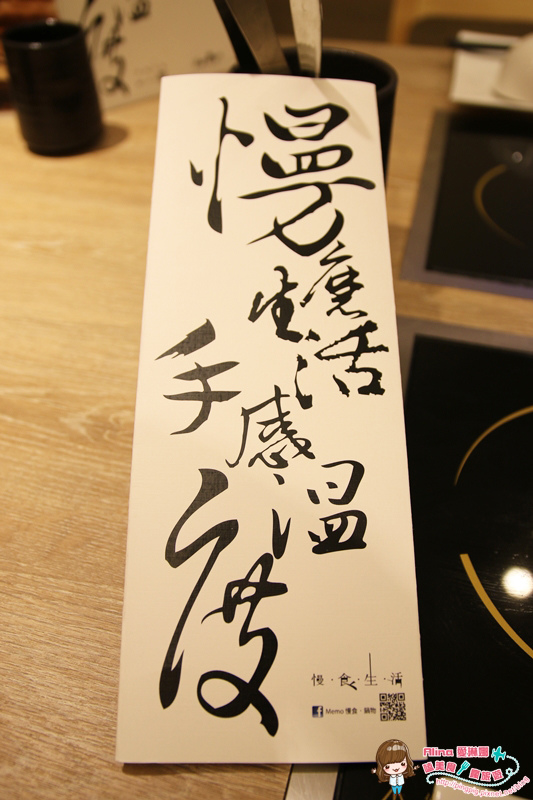 慢
生活
手感
溫度
慢·食·生·活
Memo 慢食·鍋物
Alina 愛琳娜
嗑美食 瘋旅遊